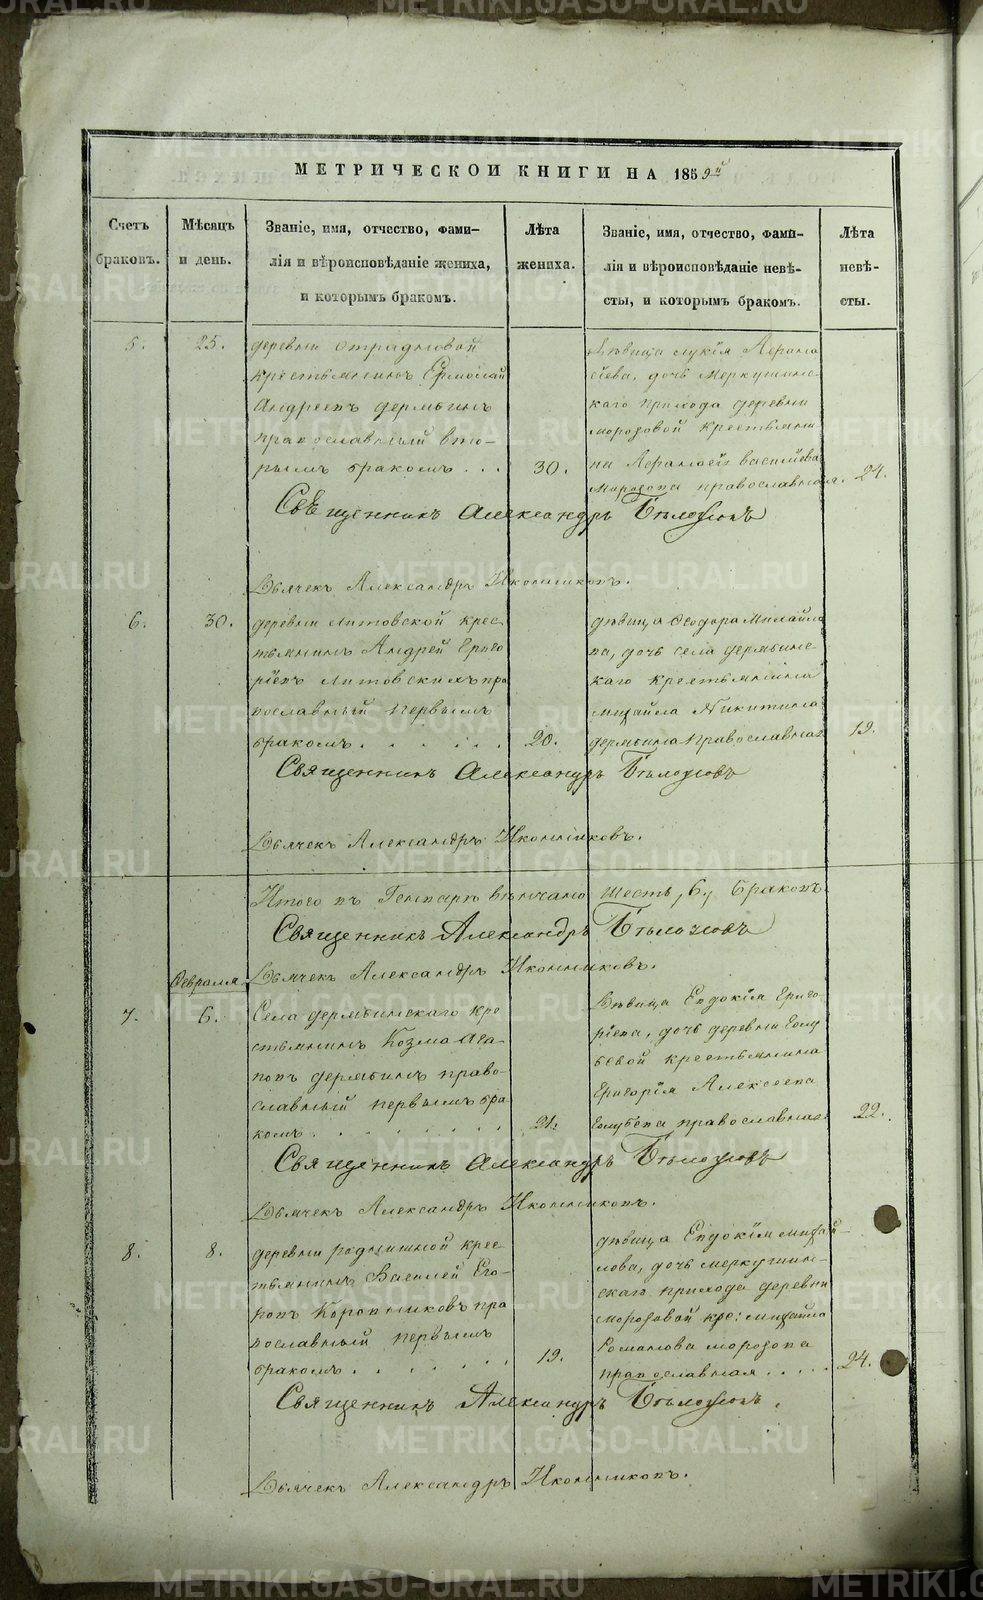 МЕТРИЧЕСКОЙ КНИГИ НА 1859й
Счетъ браковъ.
Мѣсяцъ и день.
Званіе, имя, отчество, фами-
лія и вѣроисповѣданіе жениха,
и которымъ бракомъ.
Лѣта жениха.
Званіе, имя, отчество, фами-
лія и вѣроисповѣданіе невѣ-
сты, и которымъ бракомъ.
Лѣта невѣ-
сты.
5.
25.
деревни Отрадновой
крестьянинъ Ермолай
Андреевъ Дерябинъ
православный вто-
рымъ бракомъ . . .
30.
Дѣвица Лукія
дочь Меркушинс-
каго прихода деревни
Морозовой крестьяни
на Васильева
Морозова православная.
24.
Священникъ Александръ
Дьячекъ Александръ Иконниковъ.
6.
30.
деревни Литовской крес
тьянинъ Андрей Григо
ріевъ Литовскихъ пра
вославный первымъ
бракомъ . . . . . .
20.
дѣвица Ѳеодора Михайло
ва, дочь села Дерябинс-
каго крестьянина
Михайла Никитина
Дерябина православная
19.
Священникъ Александръ
Дьячекъ Александръ Иконниковъ.
Итого въ Генварѣ вѣнчано шесть, 6, браковъ.
Священникъ Александръ
Дьячекъ Александръ Иконниковъ.
Февраля
7.
6.
Села Дерябинскаго кре
стьянинъ Козма Ага-
повъ Дерябинъ право-
славный первымъ бра-
комъ . . . . . . . .
21.
Дѣвица Евдокія Григо-
ріева, дочь деревни Голу
бевой крестьянина
Григорія Алексеева
Голубева православная
22.
Священникъ Александръ
Дьячекъ Александръ Иконниковъ.
8.
8.
деревни Родниш­ной крес
тьянинъ Василей Его-
ровъ Коровниковъ пра
вославный первымъ
бракомъ . . . . . . .
19.
дѣвица Евдокія Михай-
лова, дочь Меркушин-
скаго прихода деревни
Морозовой кре: Михайла
Романова Морозова
православная . . . . .
24.
Священникъ Александръ
Дьячекъ Александръ Иконниковъ.
METRIKI.GASO-URAL.RU